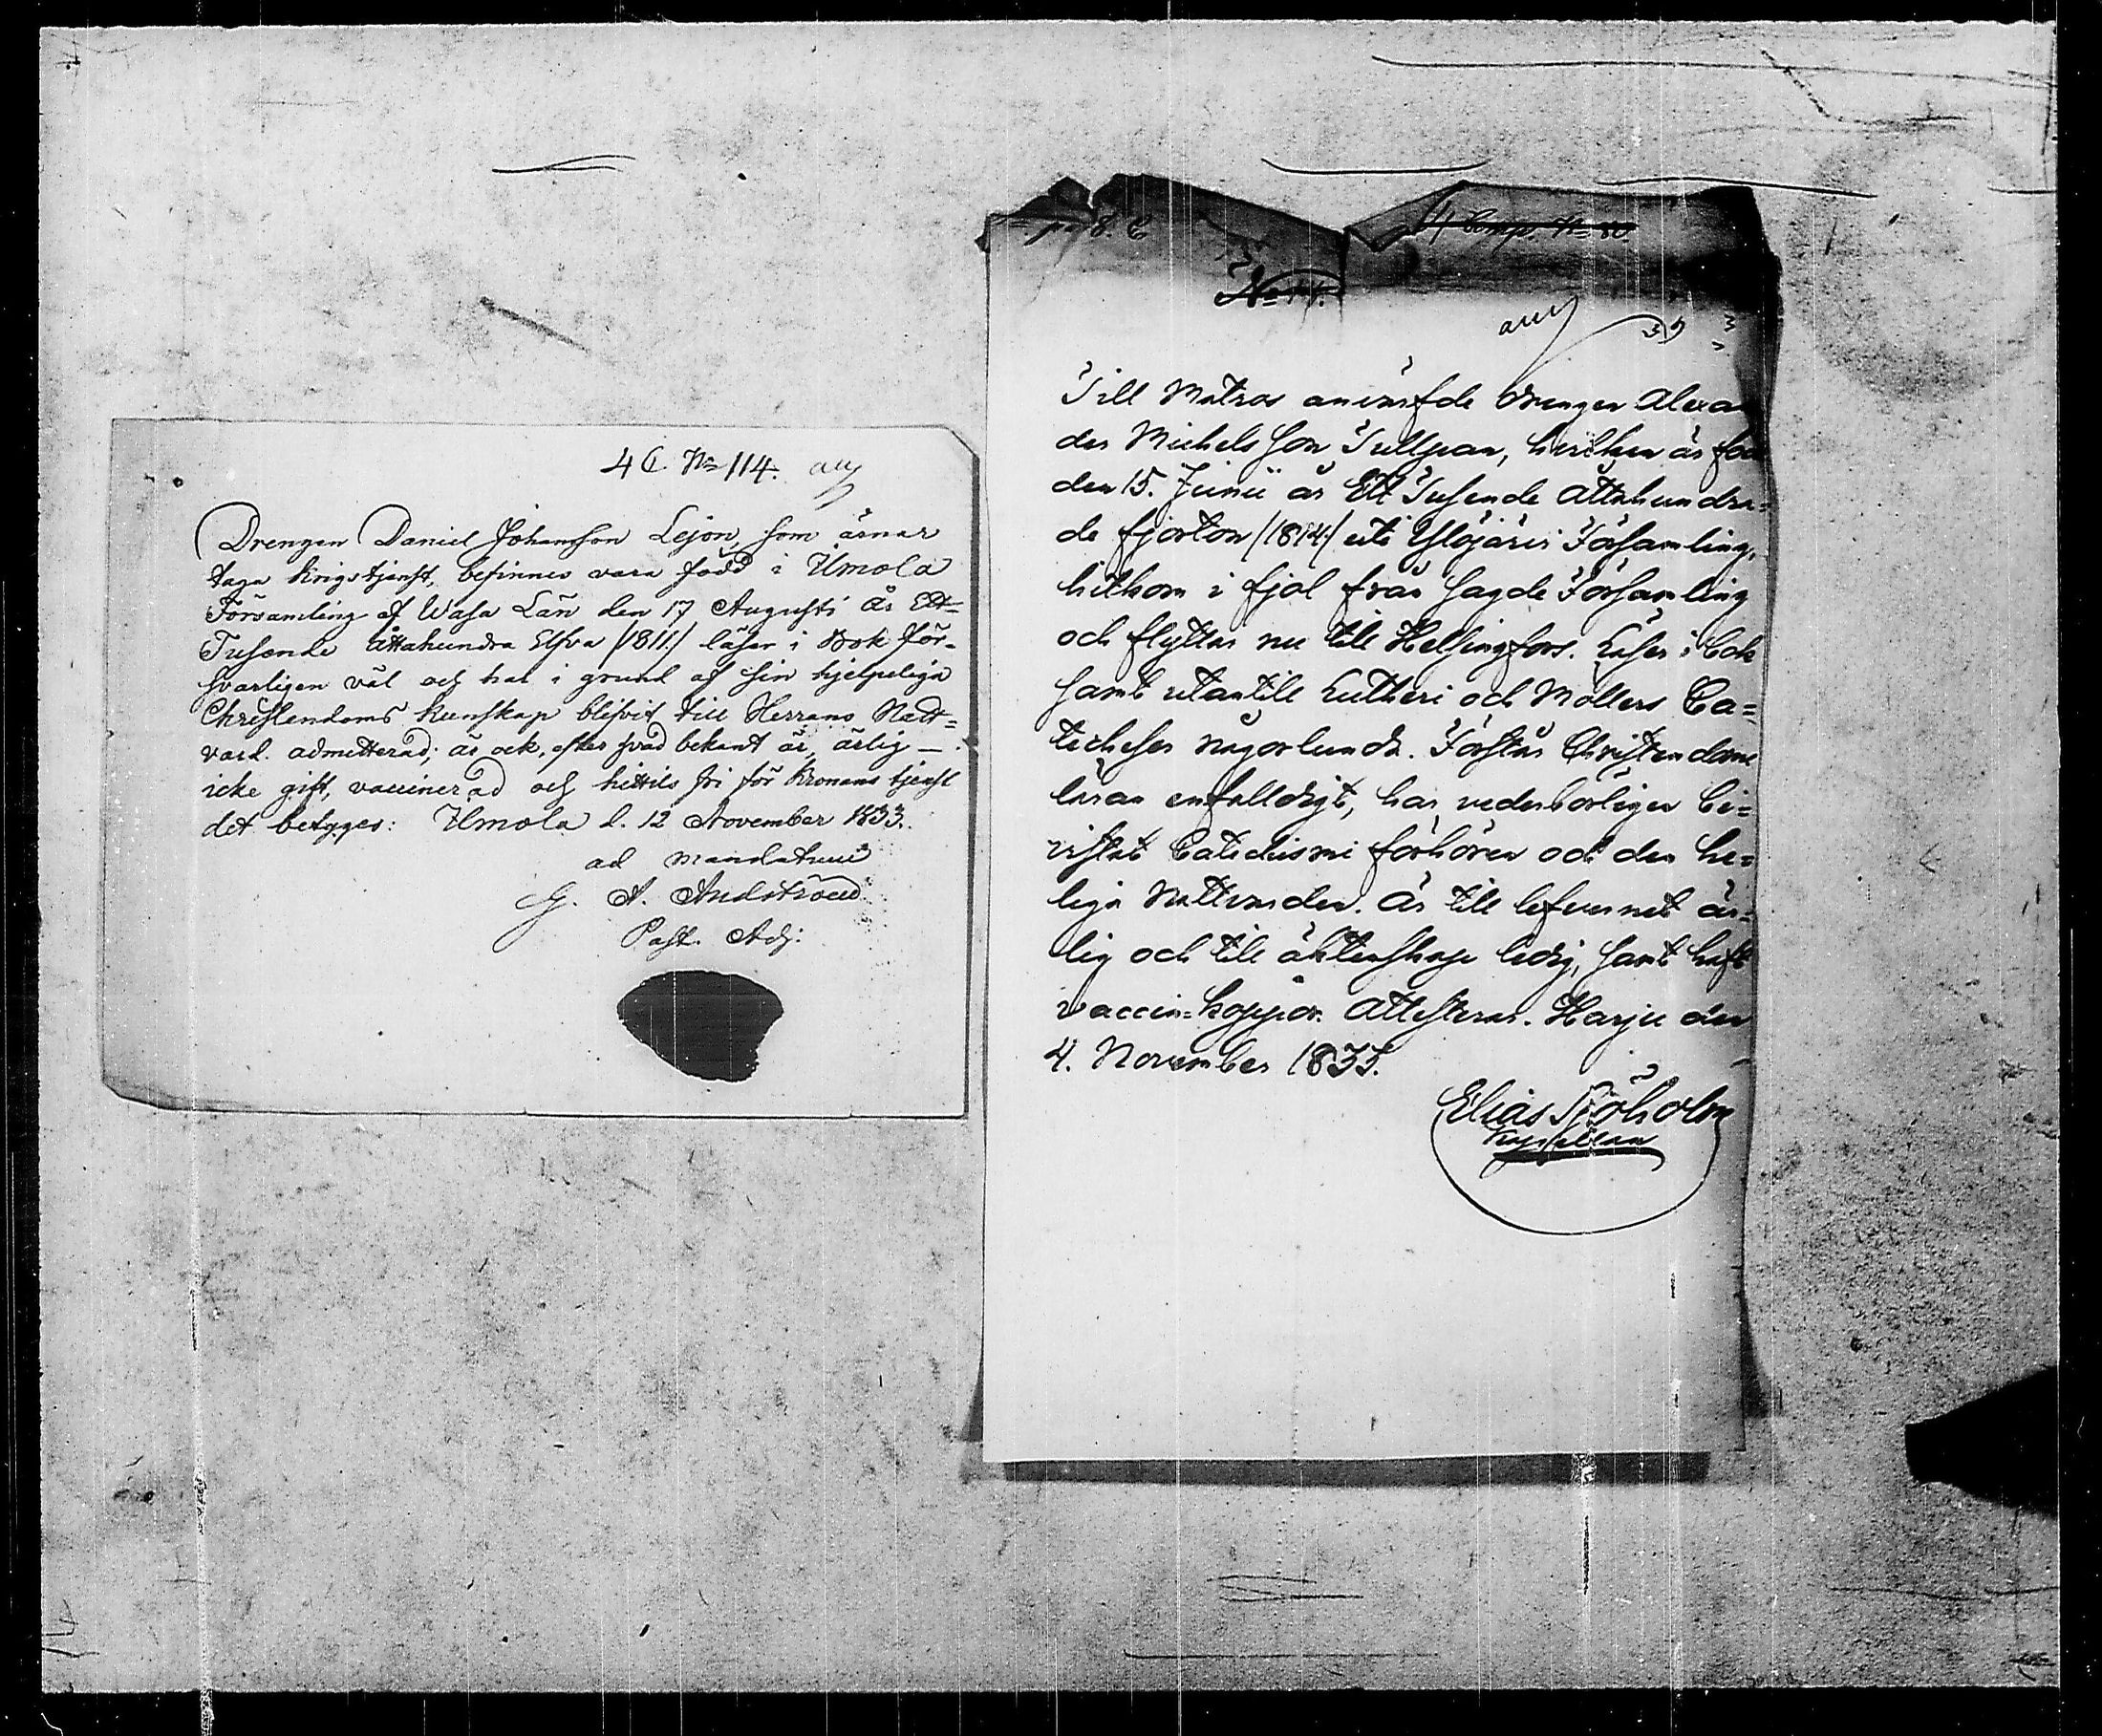 4 C. No 114.
Drengen Daniel Johansson Lejon, som ärnar
taga krigstjenst, befinnes vara född i Ilmola
Församling af Wasa Län den 17 Augusti år Ett-
Tusende Åttahundra Elfva /1811./ läser i Bok för-
svarligen väl och har i grund af sin hjelpeliga
Christendoms kunskap blifvit till Herrans Natt-
vard admitterad; är ock, efter hvad bekant är, ärlig —
icke gift, vaccinerad och hittils fri för Kronans tjenst
det betyges: Ilmola d. 12 November 1833.
ad mandatum
G. A. Andström
Past. Adj:
4 Comp. No 80.
Till Matros anvärfde drengen Alexan
der Michelsson Tullpan, hvilken är född
den 15. Junii år Ett Tusende Åttahundra-
de fjorton /1814/ uti Ylöjärvi Församling,
hitkom i fjol från sagde Församling
och flyttar nu till Helsingfors. Läser i bok
samt utantill Lutheri och Möllers Ca-
techeser någorlunda. Förstår Christendoms
läran enfalldigt, har vederbörligen bi-
vistat Catechismi förhören och den he-
liga Nattvarden. Är till lefvernet är-
lig och till äktenskap ledig, samt haft
vaccin-koppor. Attesteras. Harju den
4. November 1833.
Elias Sjöholm
Kapellan